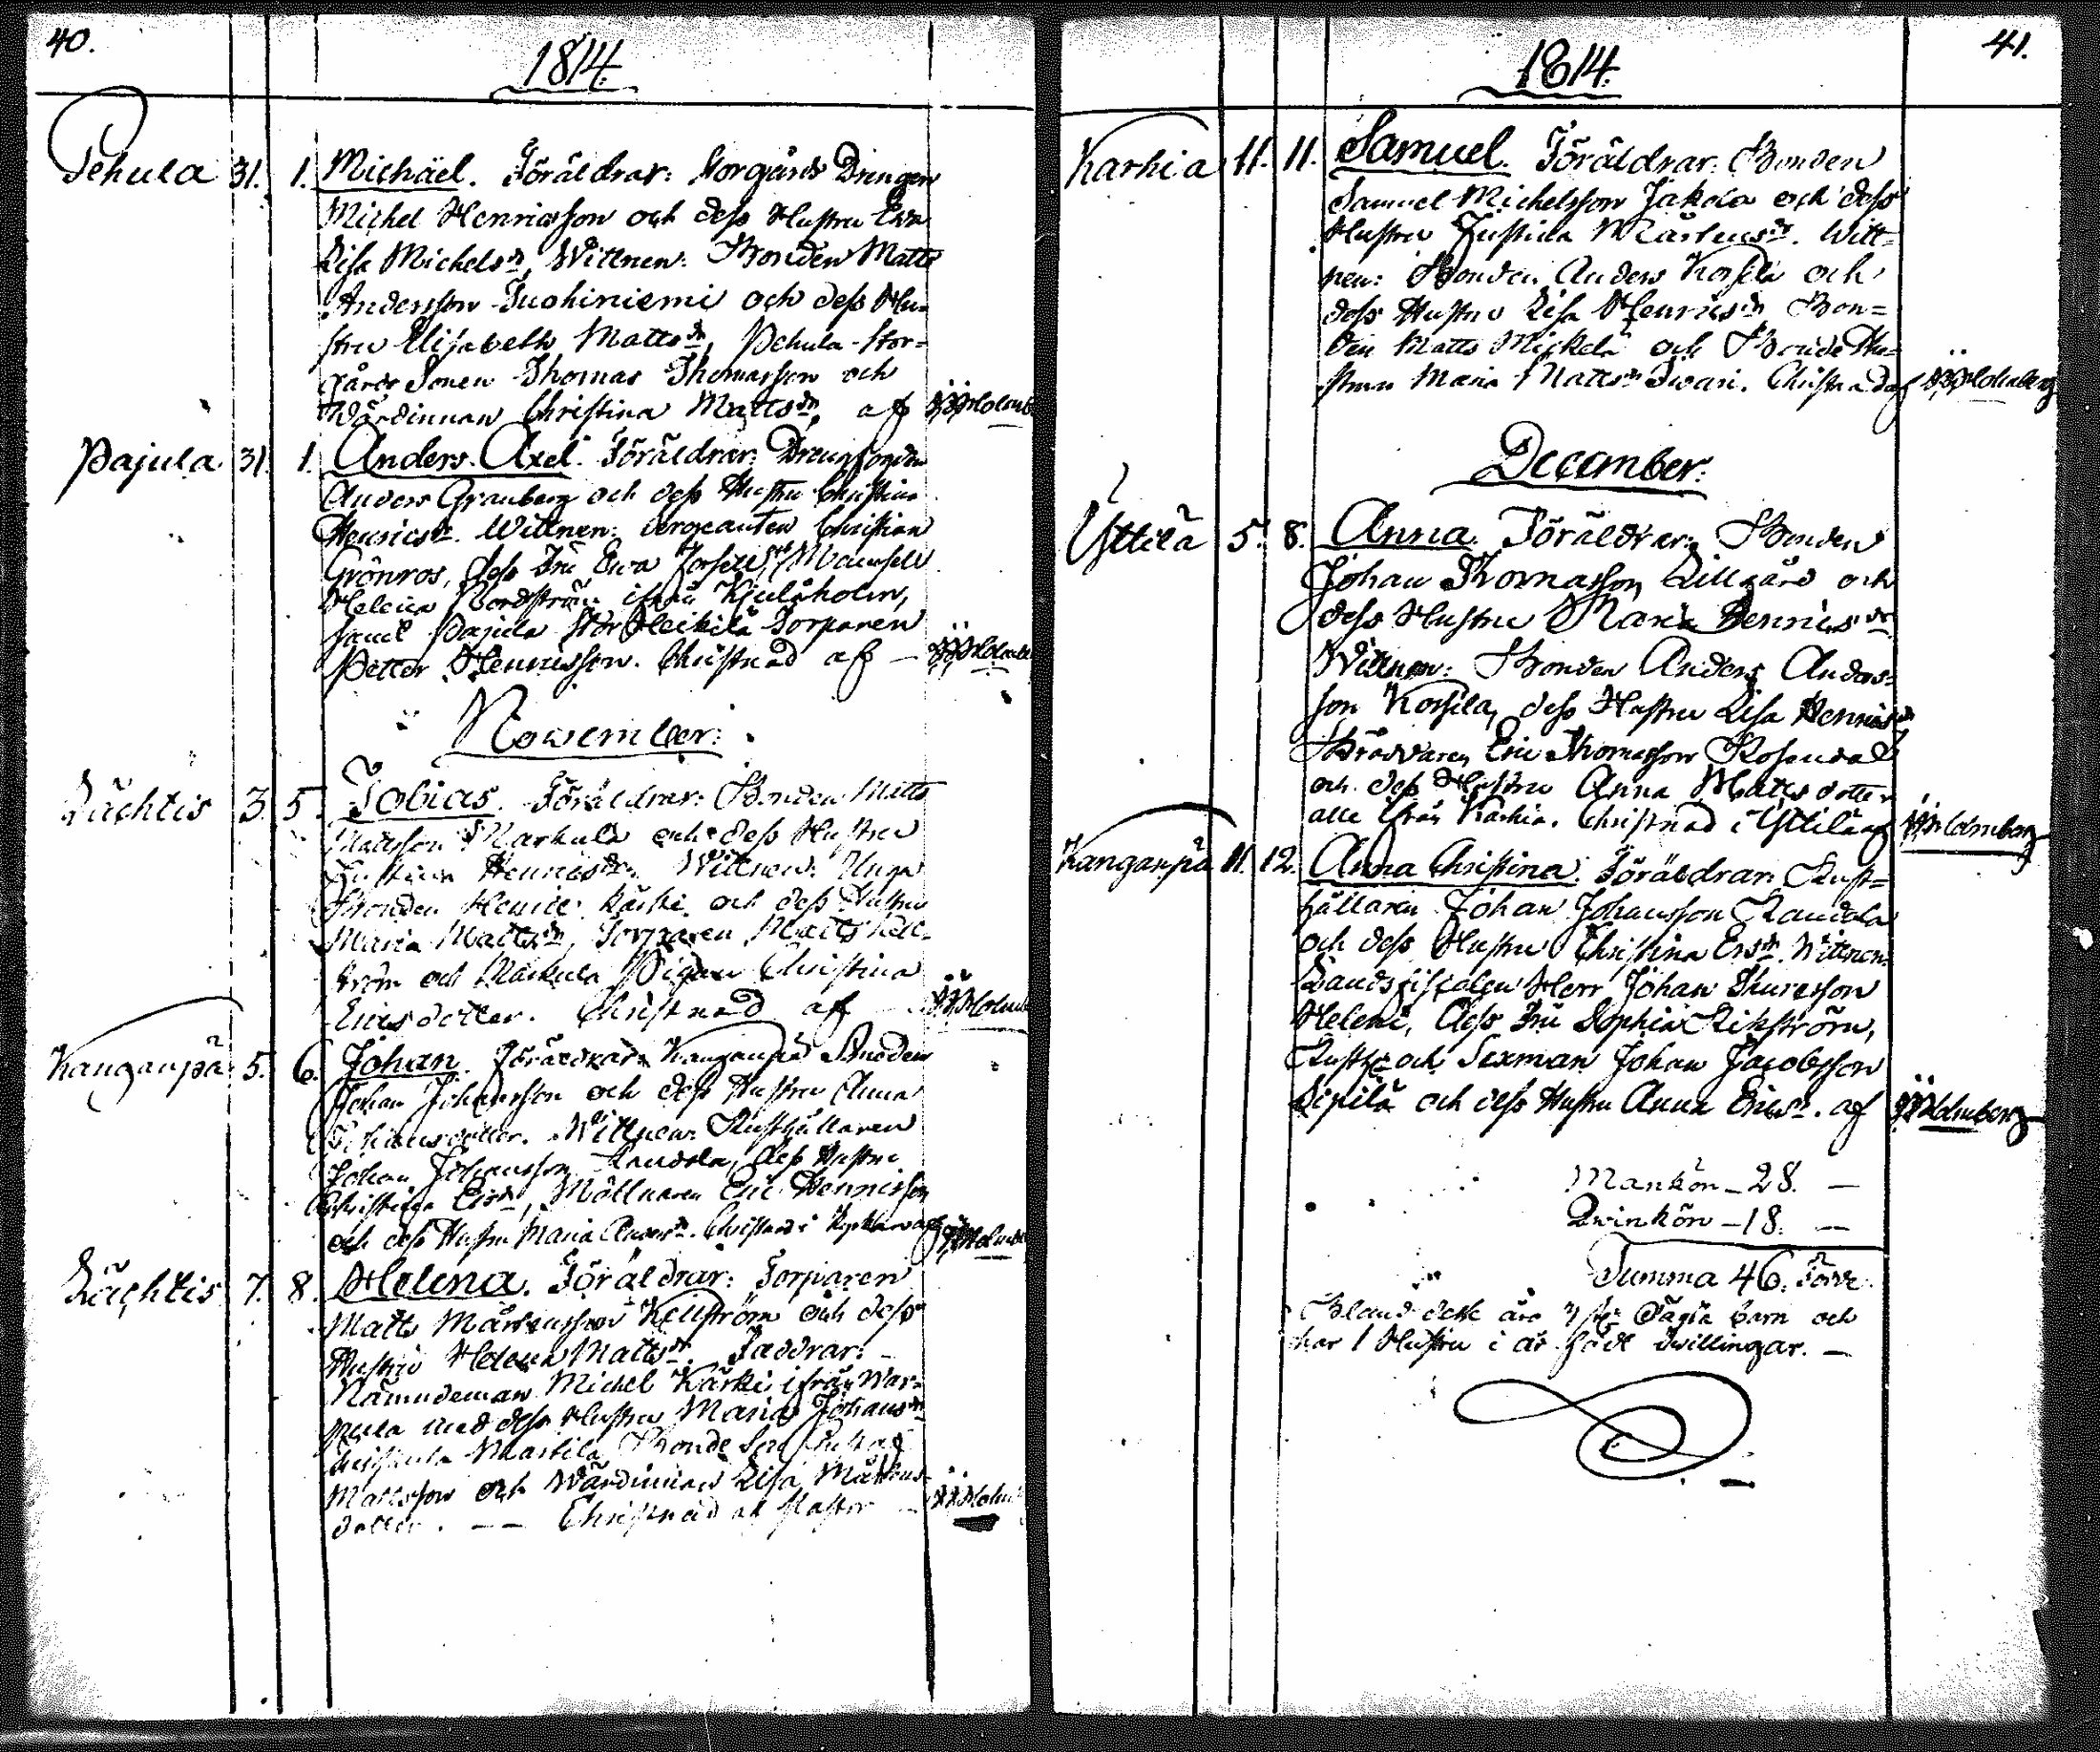 40.
1814.
Pehula 31. 1. Michäel. Föräldrar: Storgårds Drengen
Michel Henricsson och dess Hustru Ewa
Lisa Michelsdr, Wittnen: Bonden Matts
Andersson Suohiniemi och dess Hu-
stru Elisabeth Mattsdr, Pehula-Stor-
gårds Sonen Thomas Thomasson och
Wärdinnan Christina Mattsdr, af Holmb
Pajula 31. 1. Anders Axel. Föräldrar:
Anders Granberg och dess Hustru Christina
Henricsdr. Wittnen: Sergeanten Christian
Grönros, dess Fru Ewa Mamsell
Helena Nordström ifrån Kjuloholm,
samt Pajula Stor Heikilä Torparen
Petter Henricsson. Christnad af —
November:
Lächtis 3. 5. Tobias. Föräldrar: Bonden Matts
Mattsson Markula och dess Hustru
Justina Henricsdr. Wittnen: Unga
Bonden Henric Kärki och dess Hustru
Maria Mattsdr, Torparen Matts Kell-
ström och Markula Pigan Christina
Ericsdotter. Christnad af Holmb
Kanganpä 5. 6. Johan. Föräldrar: Kanganpä Smeden
Johan Johansson och dess Hustru Anna
Johansdotter. Wittnen: Rusthållaren
Johan Johansson Randala, dess Hustru
Christina Ersdr, Möllnaren Eric Henricsson
och dess Hustru Maria Andersdr. Christnad i af
Lächtis 7. 8. Helena. Föräldrar: Torparen
Matts Mårtensson Kellström och dess
Hustru Helena Mattsdr. Faddrar:
Nämndeman Michel Kärki ifrån War-
pula med dess Hustru Maria Johansdr
Markila Bonde Son Gustaf
Mattsson och Wärdinnan Lisa Mårtens-
dotter. — — Christnad af Pastor —
41.
1814.
Karhia 11. 11. Samuel. Föräldrar: Bonden
Samuel Michelsson Jakola och dess
Hustru Justina Mårtensdr. Witt-
nen: Bonden Anders Korsila och
dess Hustru Lisa Henricsdr Bon-
den Matts Mickelä och Bonde Hu-
strun Maria Mattsdr Iwari. Christnad af Holmberg
December:
Yttilä 5. 8. Anna. Föräldrar: Bonden
Johan Thomasson Lillgård och
dess Hustru Maria Henricsdr
Wittnen: Bonden Anders Anders-
son Korsila, dess Hustru Lisa Henricsdr
Eric Thomasson Rosendal
och dess Hustru Anna Mattsdotter
alle ifrån Karhia. Christnad i Yttilä af Holmberg
Kanganpä 11. 12. Anna Christina. Föräldrar: Rust-
hållaren Johan Johansson Randala
och dess Hustru Christina Ersdr. Wittnen:
Landsfiscalen Herr Johan Thuresson
Heleni, dess Fru Sophia Rikström,
Rusth. och Sexman Johan Jacobsson
Sipilä och dess Hustru Anna Ericsdr. af Holmberg
Mankön — 28. —
Qwinkön — 18. —
Summa 46.
Bland desse äro oägta barn och
har 1 Hustru i år födt twillingar. —